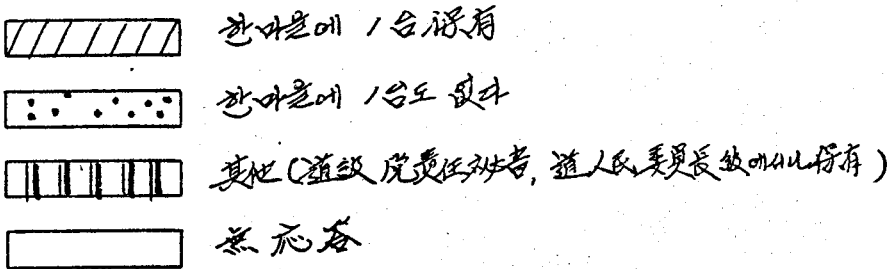 한마을에 1台保有
한마을에 1台도 없다
其他(道級 党責任者, 道人民委員長級에서나 保有)
無応答